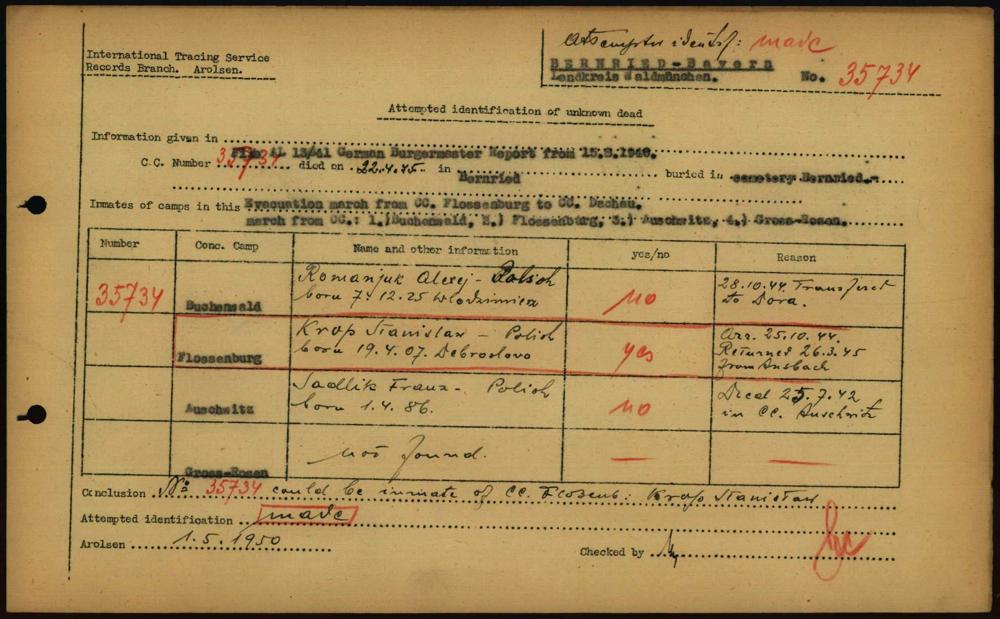 International Tracing Service
Records Branch. Arolsen.
Attempted identif: made
BERNRIED-Bayern
Landkreis Waldmünchen.
No. 35734
Attempted identification of unknown dead
Information given in File AL 13/41 German Burgermaster Report from
C.C. Number 35734 died on 22.4.45 in Bernried buried in cemetery Bernried.
Inmates of camps in this Evacuation march from CC. Flossenburg to CC. Dachau.
march from CC.: 1.)Buchenwald, 2.) Flossenburg, 3.) Auschwitz, 4.) Gross-Rosen.
Number Conc. Camp Name and other information yes/no Reason
35734 Buchenwald Romanjuk Alexej - Polish no 28.10.44 Transferet
born 7.12.25 Wlodzimierz to Dora.
Flossenburg Krop Stanislaw - Polish yes Arr. 25.10.44.
born 19.4.07. Debroslovo Returned 26.3.45
from Ansbach
Auschwitz Sadlik Franz - Polish no Died 25.7.42
born 1.4.86. in CC. Auschwitz
Gross-Rosen not found. — —
Conclusion No 35734 could be inmate of CC. Flossenb: Krop Stanislaw
Attempted identification made
Arolsen 1.5.1950
Checked by